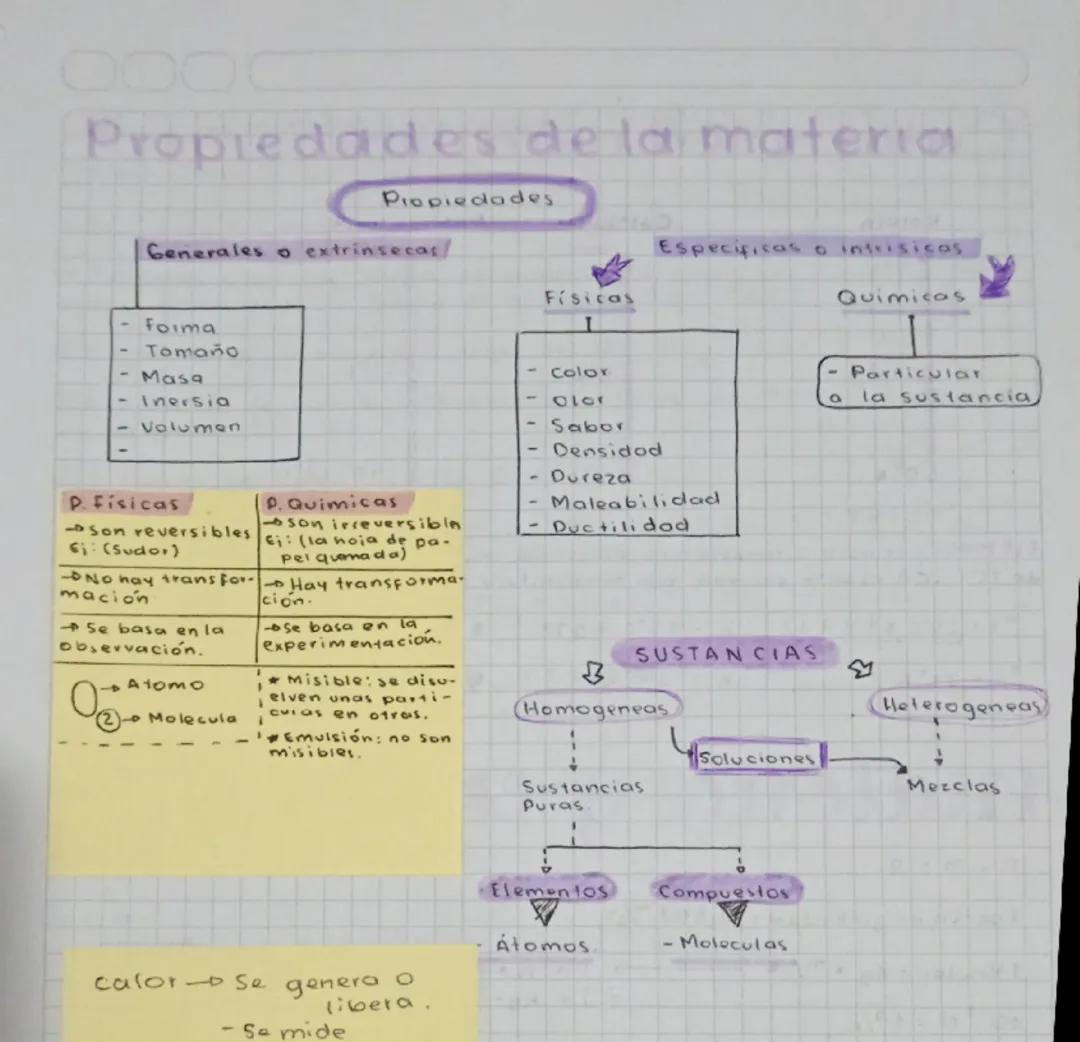 Propiedades de la materia
Propiedades
Generales o extrinsecas
- Forma
- Tamaño
- Masa
- Inersia
- Volumen
-
Especificas o intrisicas
Físicas
- Color
- Olor
- Sabor
- Densidad
- Dureza
- Maleabilidad
- Ductilidad
Quimicas
- Particular
a la sustancia
P. Físicas
→ Son reversibles
Ej: (Sudor)
→ No hay transfor-
mación
→ Se basa en la
observación.
→ Atomo
2 → Molecula
P. Quimicas
→ Son irreversible
Ej: (la hoja de pa-
pel quemada)
→ Hay transforma-
ción.
→ Se basa en la
experimentación.
* Misible: se disu-
elven unas parti-
culas en otras.
* Emulsión: no son
misibles.
SUSTANCIAS
Homogeneas
Heterogeneas
Soluciones
Sustancias
Puras.
Mezclas
Elementos
Compuestos
- Átomos.
- Moleculas
calor → Se genera o
libera.
- Se mide